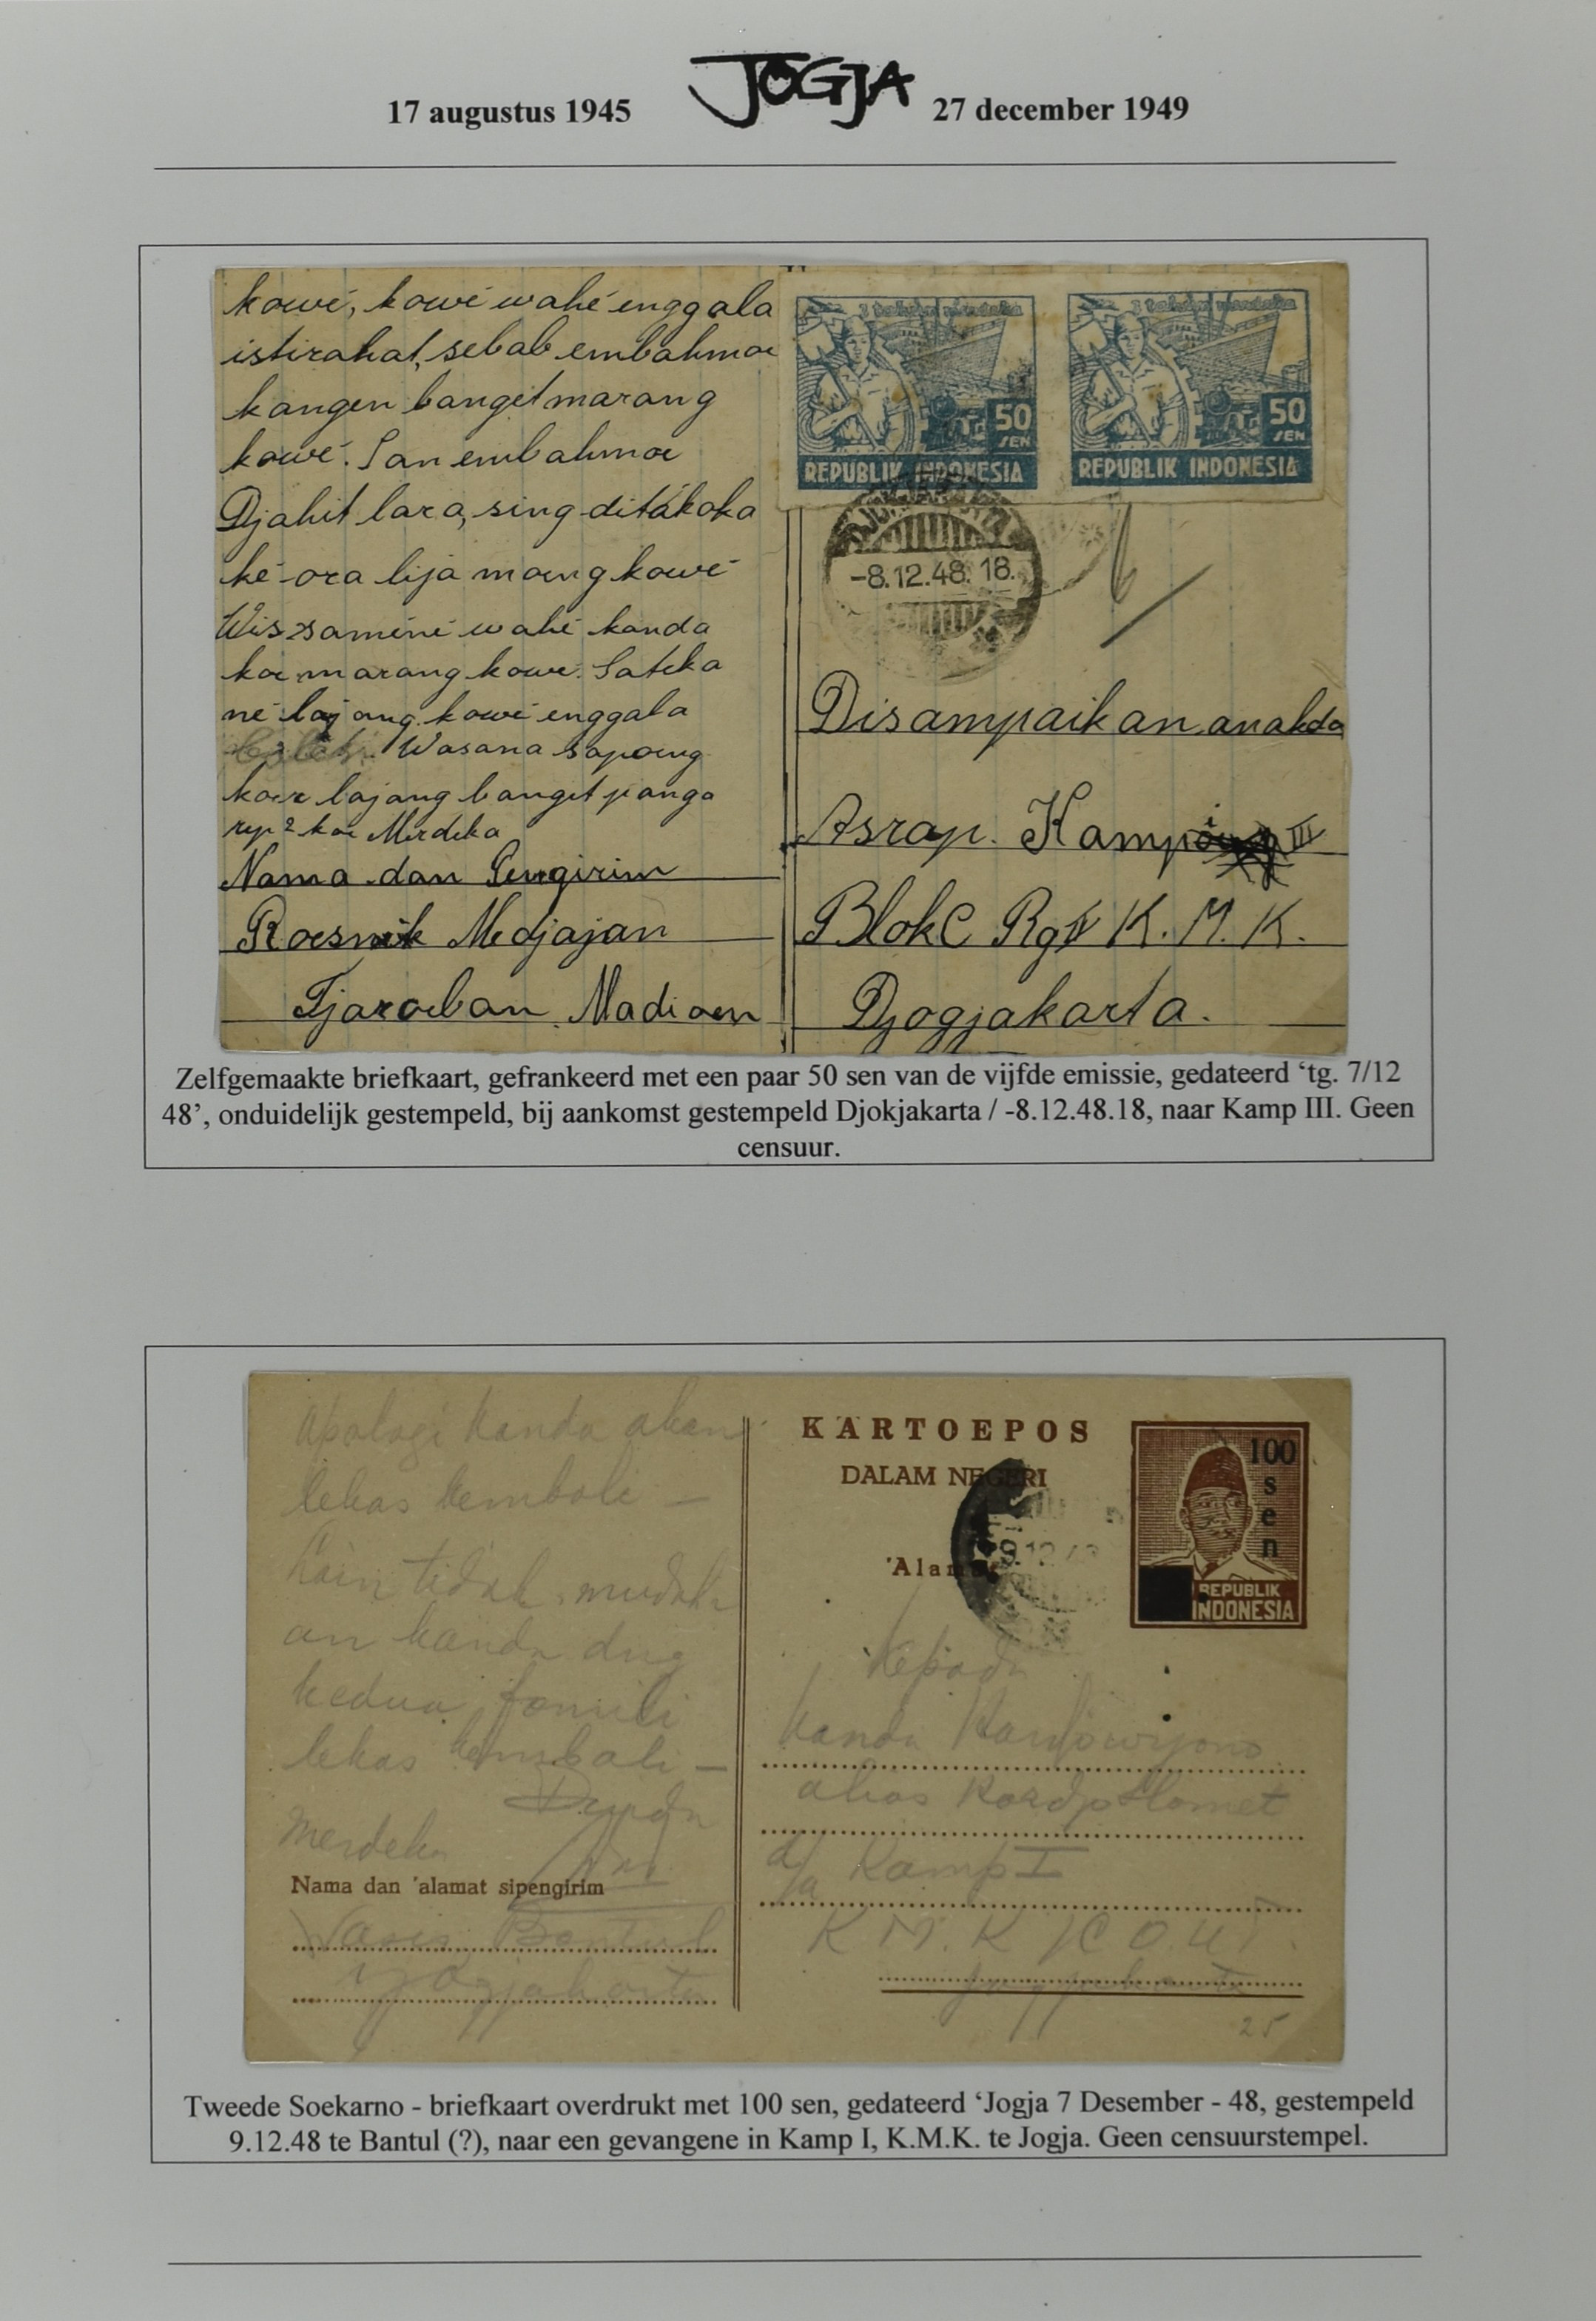 17 augustus 1945 JOGJA 27 december 1949
kowé, kowé wahé enggala
istirahat, sebab embahmoe
kangen banget marang
kowé. Lan embahmoe
Djahit lara, sing ditakoka
ké ora lija moeng kowé
Wis saméné wahé kanda
koe marang kowé. Sateka
né lajang kowé enggala
Wasana sapoeng
koer lajang banget panga
rep2 koe Merdeka
Nama dan Pengirim
Roesmik Medjajan
Tjaroeban Madioen
3 tahun merdeka
50
SEN
REPUBLIK INDONESIA
3 tahun merdeka
50
SEN
REPUBLIK INDONESIA
-8.12.48.18.
Disampaikan anakda
Asrap. Kamp III
Blok C Rgt K.M.K.
Djogjakarta.
Zelfgemaakte briefkaart, gefrankeerd met een paar 50 sen van de vijfde emissie, gedateerd ‘tg. 7/12
48’, onduidelijk gestempeld, bij aankomst gestempeld Djokjakarta / -8.12.48.18, naar Kamp III. Geen
censuur.
Apalagi kanda akan
lekas kembali –
Lain tidak, mudah
an kanda dng
kedua famili
lekas kembali –
Merdeka
Nama dan 'alamat sipengirim
Bantul
Jogjakarta
KARTOEPOS
DALAM NEGERI
'Alamat
100
sen
REPUBLIK
INDONESIA
Kepada
Kanda
alias
d/a Kamp I
K.M.K.
Jogjakarta
25
Tweede Soekarno - briefkaart overdrukt met 100 sen, gedateerd ‘Jogja 7 Desember - 48, gestempeld
9.12.48 te Bantul (?), naar een gevangene in Kamp I, K.M.K. te Jogja. Geen censuurstempel.